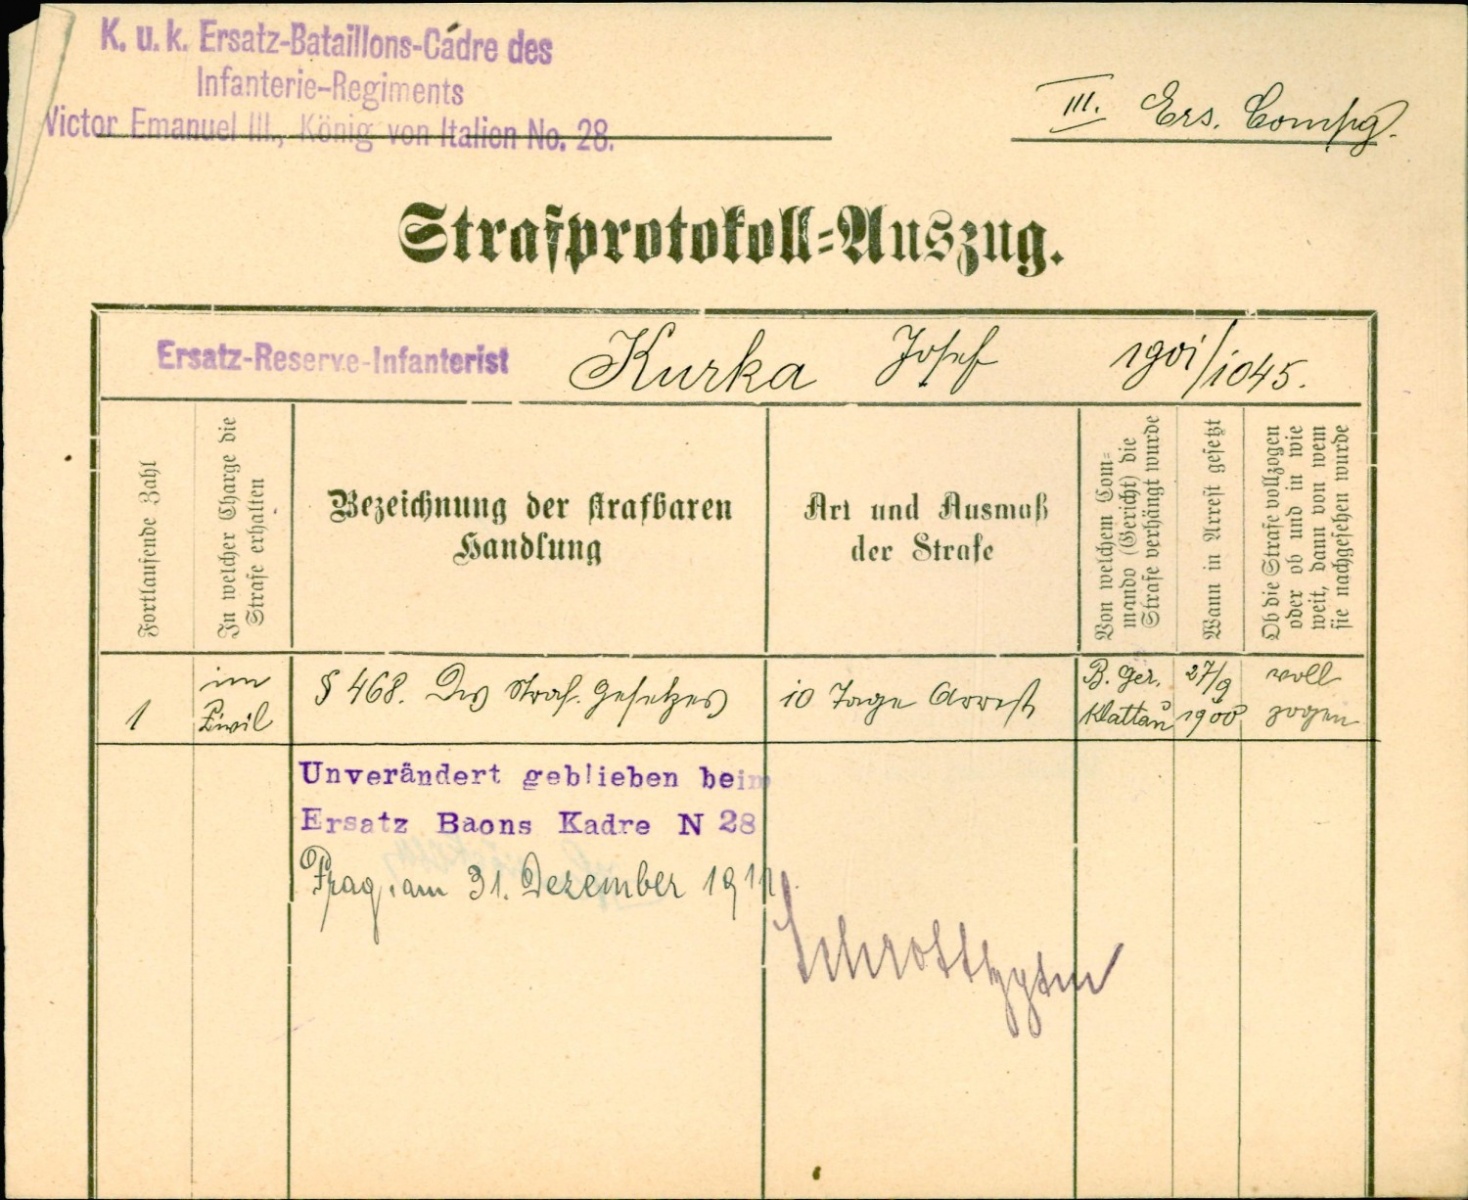 K. u. k. Ersatz-Bataillons-Cadre des
Infanterie-Regiments
Victor Emanuel III., König von Italien No. 28.
III. Ers. Compg.
Strafprotokoll-Auszug.
Ersatz-Reserve-Infanterist Kurka Josef 1901/1045.
Fortlaufende Zahl
In welcher Charge die
Strafe erhalten
Bezeichnung der strafbaren
Handlung
Art und Ausmaß
der Strafe
Von welchem Com-
mando (Gericht) die
Strafe verhängt wurde
Wann in Arrest gesetzt
Ob die Strafe vollzogen
oder ob und in wie
weit, dann von wem
sie nachgesehen wurde
1
im
Zivil
§ 468. Des Straf. gesetzes
10 Tage Arrest
B. Ger.
Klattau
27/9
1900
voll
zogen
Unverändert geblieben beim
Ersatz Baons Kadre N 28
Prag, am 31. Dezember